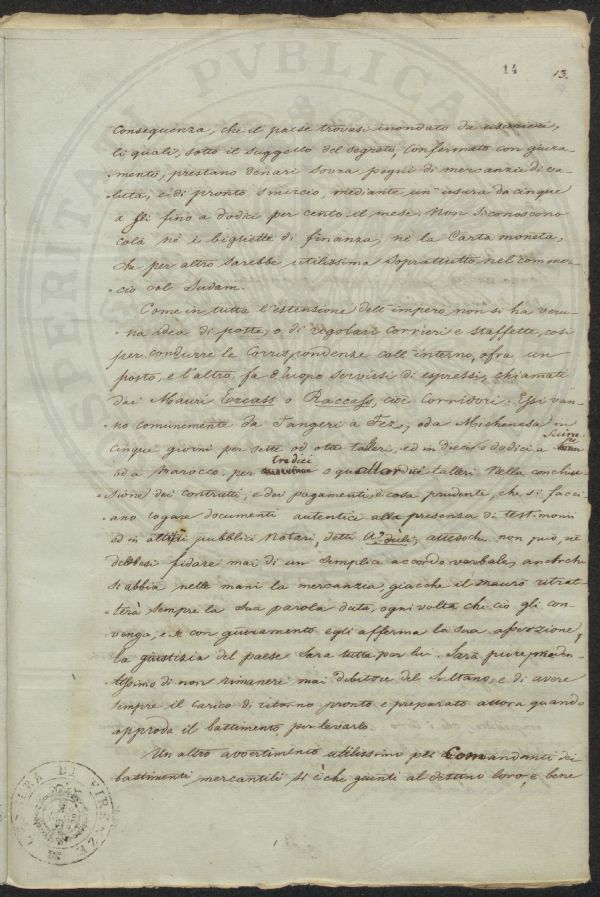 14 13.
consequenza, che il paese trovasi inondato da usurieri,
li quali, sotto il suggello del segreto, confermato con giura-
mento, prestano denari sovra pegni di mercanzie di va-
luta, e di pronto smercio, mediante un' usura da cinque
a sei fino a dodici per cento il mese. Non si conoscono
colà nè i biglietti di finanza, nè la Carta moneta,
che per altro sarebbe utilissima soprattutto nel commer-
cio col Sudam.
Come in tutta l'estensione dell' impero non si ha veru-
na idea di poste, o di regolari corrieri e staffette, così
per condurre le corrispondenze coll' interno, o fra un
posto, e l'altro, fa d'uopo servirsi di espressi, chiamati
dai Mauri Ercass o Raccass, cioè Corridori. Essi van-
no comunemente da Tangeri a Fez, o da Michenasa in
cinque giorni per sette od otto talleri, ed in dieci o dodici a
od a Marocco per tredici o quattordici talleri. Nella conclu-
sione dei contratti, e dei pagamenti è cosa prudente, che si facci-
ano rogare documenti autentici alla presenza di testimonii
ed in atti pubblici Notari, detti A'duli, attesochè non può, nè
debbesi fidare mai di un semplice accordo verbale, anchche
si abbia nelle mani la mercanzia, giacchè il Mauro ritrat-
terà sempre la sua parola data, ogni volta che ciò gli con-
venga, e se con giuramento egli afferma la sua asserzione,
la giustizia del paese sarà tutta per lui. Sarà pure pruden-
tissimo di non rimanere mai debitore del Sultano, e di avere
sempre il carico di ritorno pronto e preparato allora quando
approda il bastimento per levarlo.
Un altro avvertimento utilissimo pei Comandanti dei
bastimenti mercantili si è che giunti al destino loro, e bene